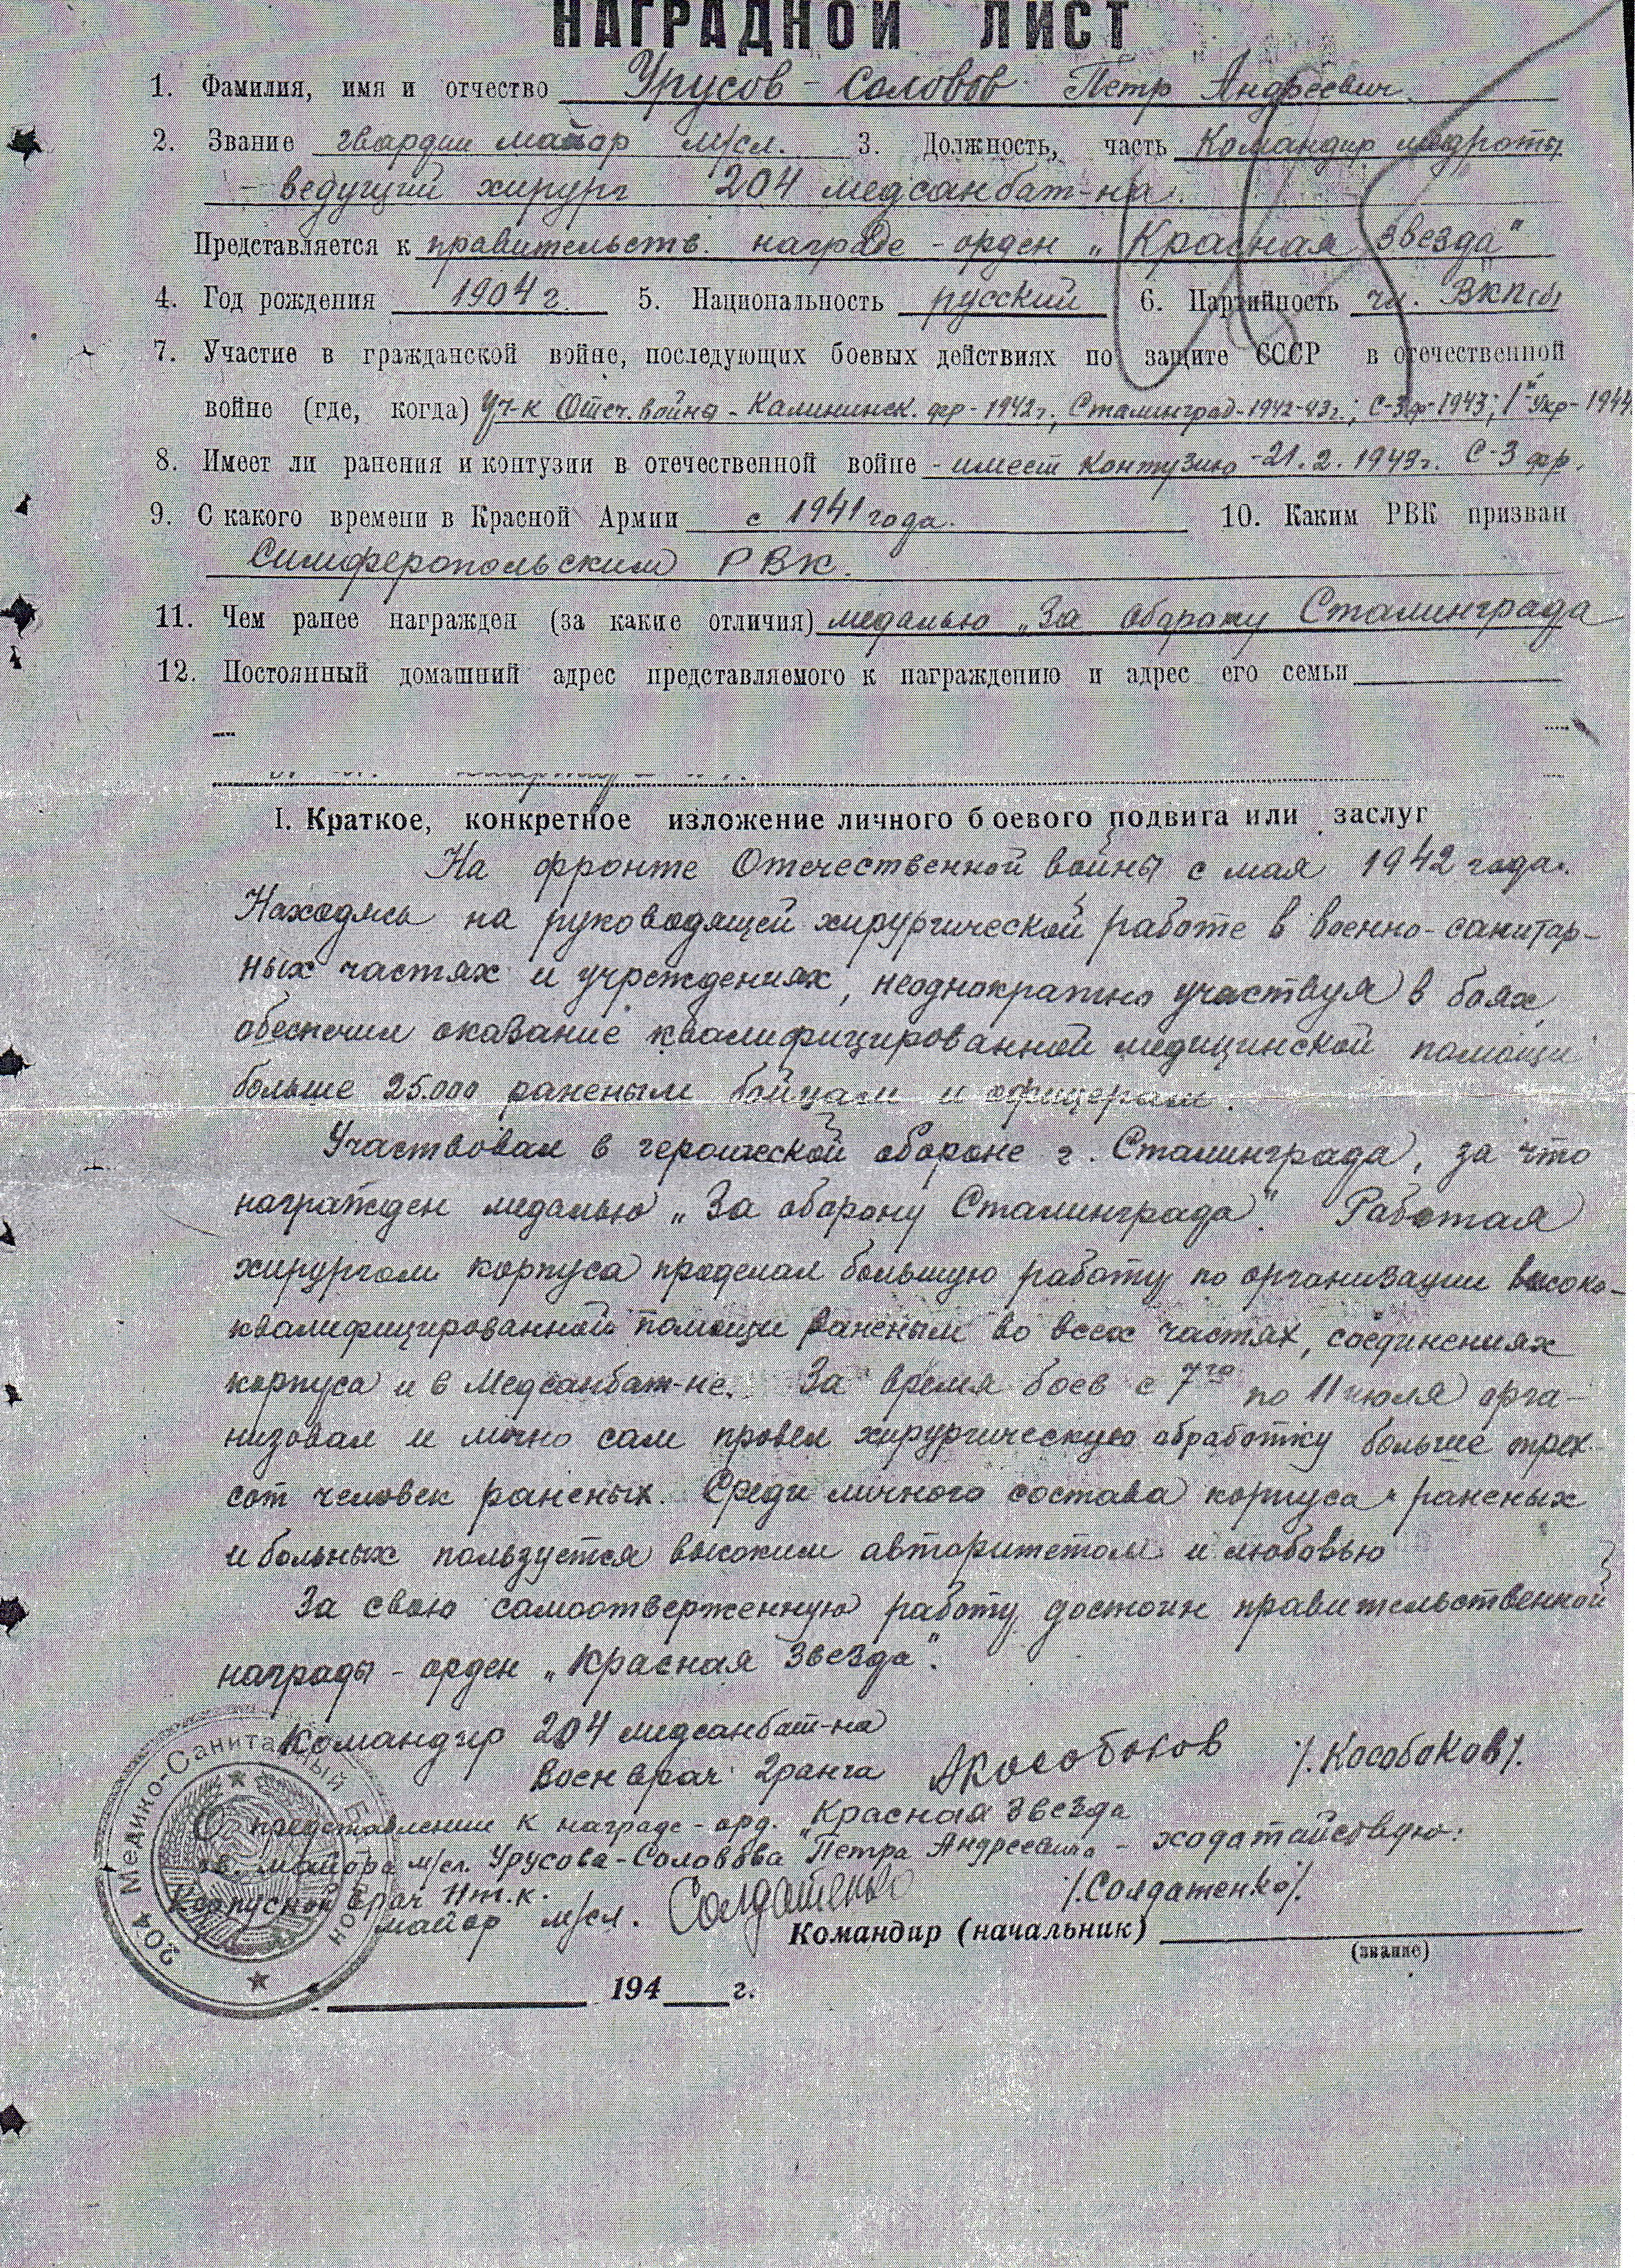 НАГРАДНОЙ ЛИСТ
1. Фамилия, имя и отчество Урусов-Соловов Петр Андреевич
2. Звание гвардии майор м/сл. 3. Должность, часть Командир медроты
- ведущий хирург 204 медсанбат-на.
Представляется к правительств. награде - орден „Красная звезда"
4. Год рождения 1904 г. 5. Национальность русский 6. Партийность чл. ВКП(б)
7. Участие в гражданской войне, последующих боевых действиях по защите СССР в отечественной
войне (где, когда) Уч-к Отеч. война - Калининск. фр - 1942 г., Сталинград - 1942-43 г.; С-З фр - 1943; 1й Укр - 1944
8. Имеет ли ранения и контузии в отечественной войне - имеет контузию - 21.2.1943 г. С-З фр.
9. С какого времени в Красной Армии с 1941 года. 10. Каким РВК призван
Симферопольским РВК.
11. Чем ранее награжден (за какие отличия) медалью „За оборону Сталинграда
12. Постоянный домашний адрес представляемого к награждению и адрес его семьи
I. Краткое, конкретное изложение личного боевого подвига или заслуг
На фронте Отечественной войны с мая 1942 года.
Находясь на руководящей хирургической работе в военно-санитар-
ных частях и учреждениях, неоднократно участвуя в боях,
обеспечил оказание квалифицированной медицинской помощи
больше 25.000 раненым бойцам и офицерам.
Участвовал в героической обороне г. Сталинграда, за что
награжден медалью „За оборону Сталинграда". Работая
хирургом корпуса проделал большую работу по организации высоко-
квалифицированной помощи раненым во всех частях, соединениях
корпуса и в Медсанбат-не. За время боев с 7го по 11 июля орга-
низовал и лично сам провел хирургическую обработку больше трех-
сот человек раненых. Среди личного состава корпуса, раненых
и больных пользуется высоким авторитетом и любовью
За свою самоотверженную работу достоин правительственной
награды - орден „Красная Звезда".
Командир 204 медсанбат-на
Военврач 2 ранга АКособоков /.Кособоков/.
О представлении к награде - орд. „Красная звезда
гв. майора м/сл. Урусова-Соловова Петра Андреевича - ходатайствую:
Корпусной врач
майор м/сл. Солдатенко /.Солдатенко/.
Командир (начальник)
(звание)
194 г.
204 Медико-Санитарный Батальон